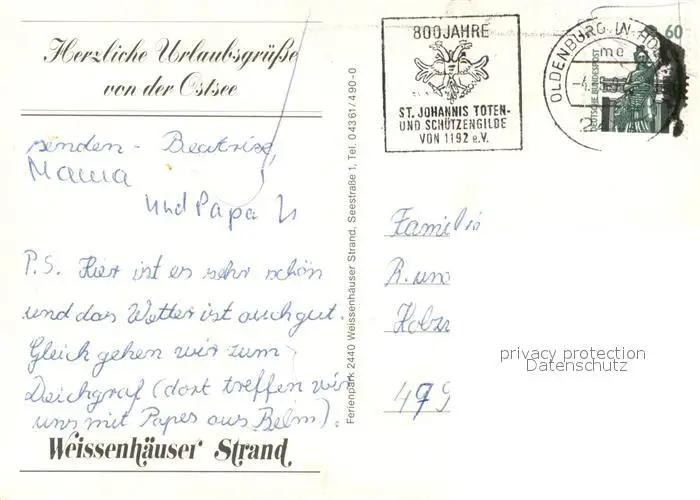 Herzliche Urlaubsgrüße
von der Ostsee
senden - Beatrice,
Mama
und Papa
P.S. Hier ist es sehr schön
und das Wetter ist auch gut.
Gleich gehen wir zum
Deichgraf (dort treffen wir
uns mit Papes aus Belm).
Weissenhäuser Strand
Ferienpark 2440 Weissenhäuser Strand, Seestraße 1, Tel. 04361/490-0
800 JAHRE
ST. JOHANNIS TOTEN-
UND SCHÜTZENGILDE
VON 1192 e.V.
OLDENBURG IN HO
me
60
DEUTSCHE BUNDESPOST
Famili
R. un
Holz
479
privacy protection
Datenschutz